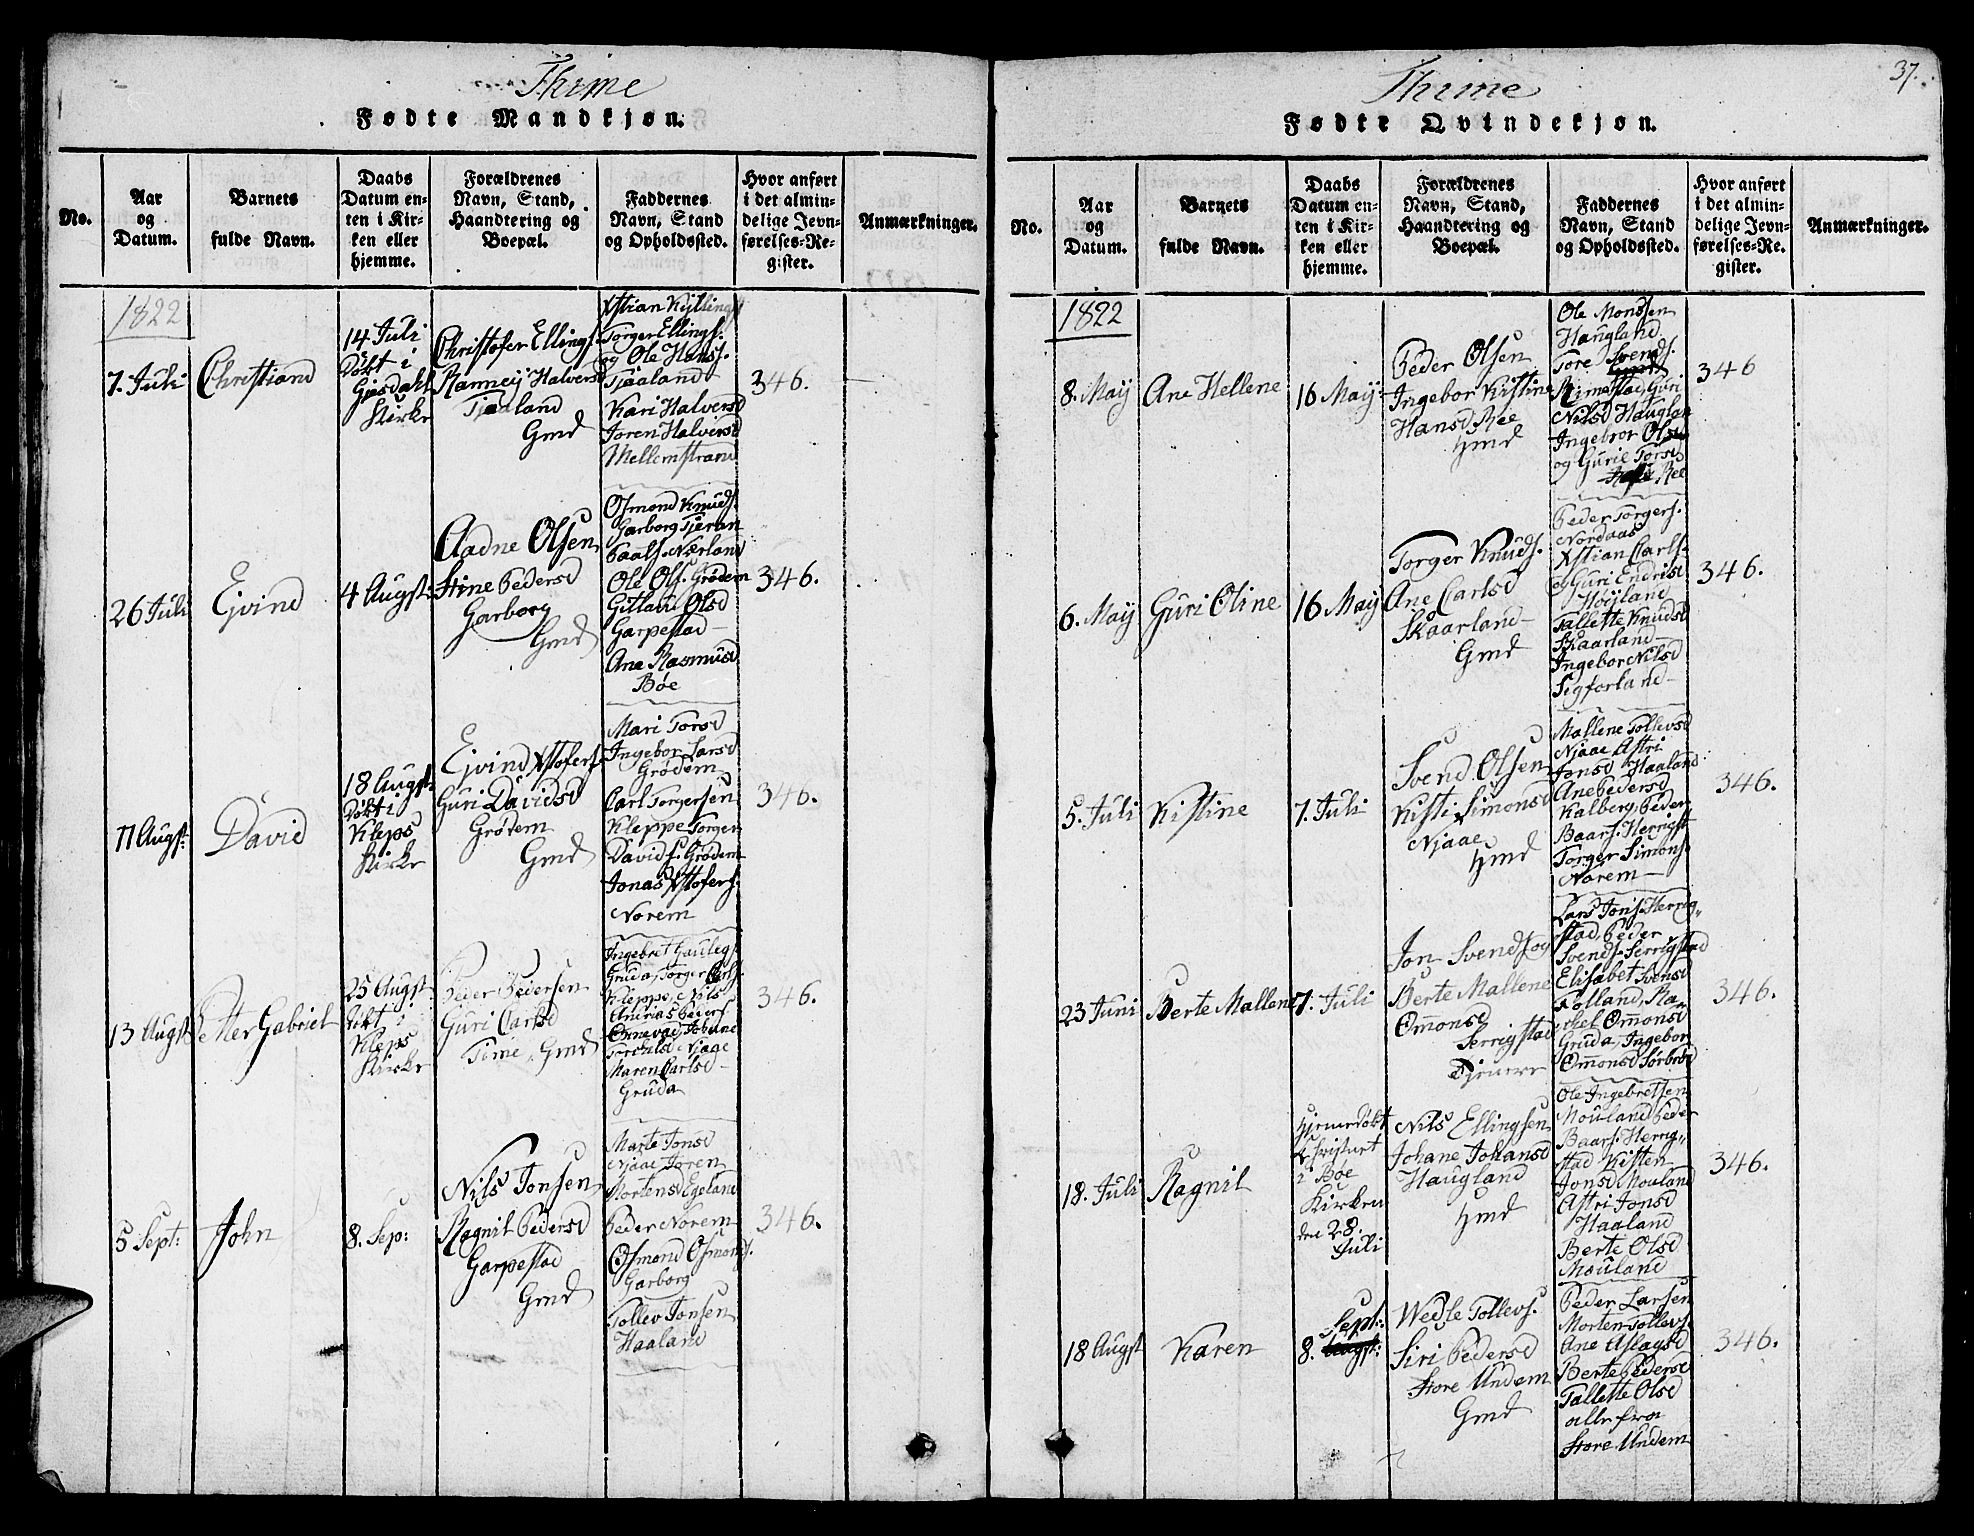 Thime
Fødte Mandkjøn.
No.
Aar
og
Datum.
Barnets
fulde Navn.
Daabs
Datum en-
ten i Kir-
ken eller
hjemme.
Forældrenes
Navn, Stand,
Haandtering og
Boepæl.
Faddernes
Navn, Stand
og Opholdssted.
Hvor anført
i det almin-
delige Jevn-
førelses-Re-
gister.
Anmærkninger.
1822
7. Juli
Christiand
14 Juli
Døbt i
Gjesdahl
Kirke
Christofer Ellings.
Rannei Halversd
Tjaaland
Gmd
Xstian Kyllings
Torger Ellings.
og Ole Hans.
Tjaaland
Kari Halversd
Joren Halversd
Mellemstrand
346.
26 Juli
Ejvind
4 Augst:
Aadne Olsen
Stine Pedersd
Garborg
Gmd
Osmond Knuds.
Garborg Tjeran
Paals. Nærland
Ole Ols. Grødem
Gitlaug Olsd
Garpestad
Ane Rasmusd
Bøe
346.
11 Augst:
David
18 Augst:
Døbt i
Kleps
Kirke
Ejvind Xstofers.
Guri Davidsd
Grødem
Gmd
Mari Torsd
Ingebor Larsd
Grødem
Carl Torgersen
Kleppe Torger
Davids. Grødem
Jonas Xstofers.
Norem
346.
13 Augst
Petter Gabriel
25 Augst
Døbt i
Kleps
Kirke
Peder Pedersen
Guri Carlsd
Time, Gmd
Ingebret Gauleg
Gruda, Torger Carls.
Kleppe, Nils
Andrias Peders.
Njaae
Maren Carlsd
Gruda
346.
5 Sept:
John
8. Sep:
Nils Jonsen
Ragnil Pedersd
Garpestad
Gmd
Marte Jonsd
Njaae Joren
Mortensd Egeland
Peder Norem
Osmond Osmonds.
Garborg
Tollev Jonsen
Haaland
346.
37.
Thime
Fødte Qvindekjøn.
No.
Aar
og
Datum.
Barnets
fulde Navn.
Daabs
Datum en-
ten i Kir-
ken eller
hjemme.
Forældrenes
Navn, Stand,
Haandtering og
Boepæl.
Faddernes
Navn, Stand
og Opholdssted.
Hvor anført
i det almin-
delige Jevn-
førelses-Re-
gister.
Anmærkninger.
1822
8. Maÿ
Ane Hellene
16 Maÿ:
Peder Olsen
Ingebor Kistine
Hansd Ree
Hmd
Ole Monssen
Haugland
Tore Svends.
Rimestad, Guri
Nilsd Haugland
Ingebror Olsd
og Gurie Torsd
Ree
346
6. Maÿ
Guri Oline
16 Maÿ
Torger Knuds.
Ane Carlsd
Skaarland
Gmd
Peder Torgers.
Nordaas
Xstian Carls.
og Guri Endrisd
Høÿland
Tallette Knudsd
Skaarland
Ingebor Nilsd
Sigforland
346.
5. Juli
Kistine
7. Juli
Svend Olsen
Kisti Simonsd
Njaae
Hmd
Mallene Tollevsd
Njaae Astri
Jonsd Haaland
Ane Pedersd
Kalberg, Peder
Baars. Herrigst
Torger Simons.
Norem
346.
23 Juni
Berte Mallene
7. Juli
Jon Svends. og
Berte Mallene
Omonsd
Serrigstad
Lars Jons. Herrig„
stad, Peder
Svends. Serrigstad
Elisabet Svensd
Folland, Ra„
chel Omonsd
Gruda, Ingebor
Omonsd Sørbrød
346.
18. Juli
Ragnil
Hjemedøbt
Christnet
i Bøe
Kirken
den 28.
Juli
Nils Ellingsen
Johane Johansd
Haugland
Hmd
Ole Ingebretsen
Mouland Peder
Baars. Herrig„
stad Kisten
Jonsd Mouland
Astri Jonsd
Haaland
Berte Olsd
Mouland
346.
18 Augst
Karen
Sept:
8. Augst:
Wedle Tollevs.
Siri Pedersd
Store Undem
Gmd
Peder Larsen
Morten Tollevs.
Ane Aslagsd
Berte Pedersd
Tallette Olsd
alle fra
Store Undem
346.